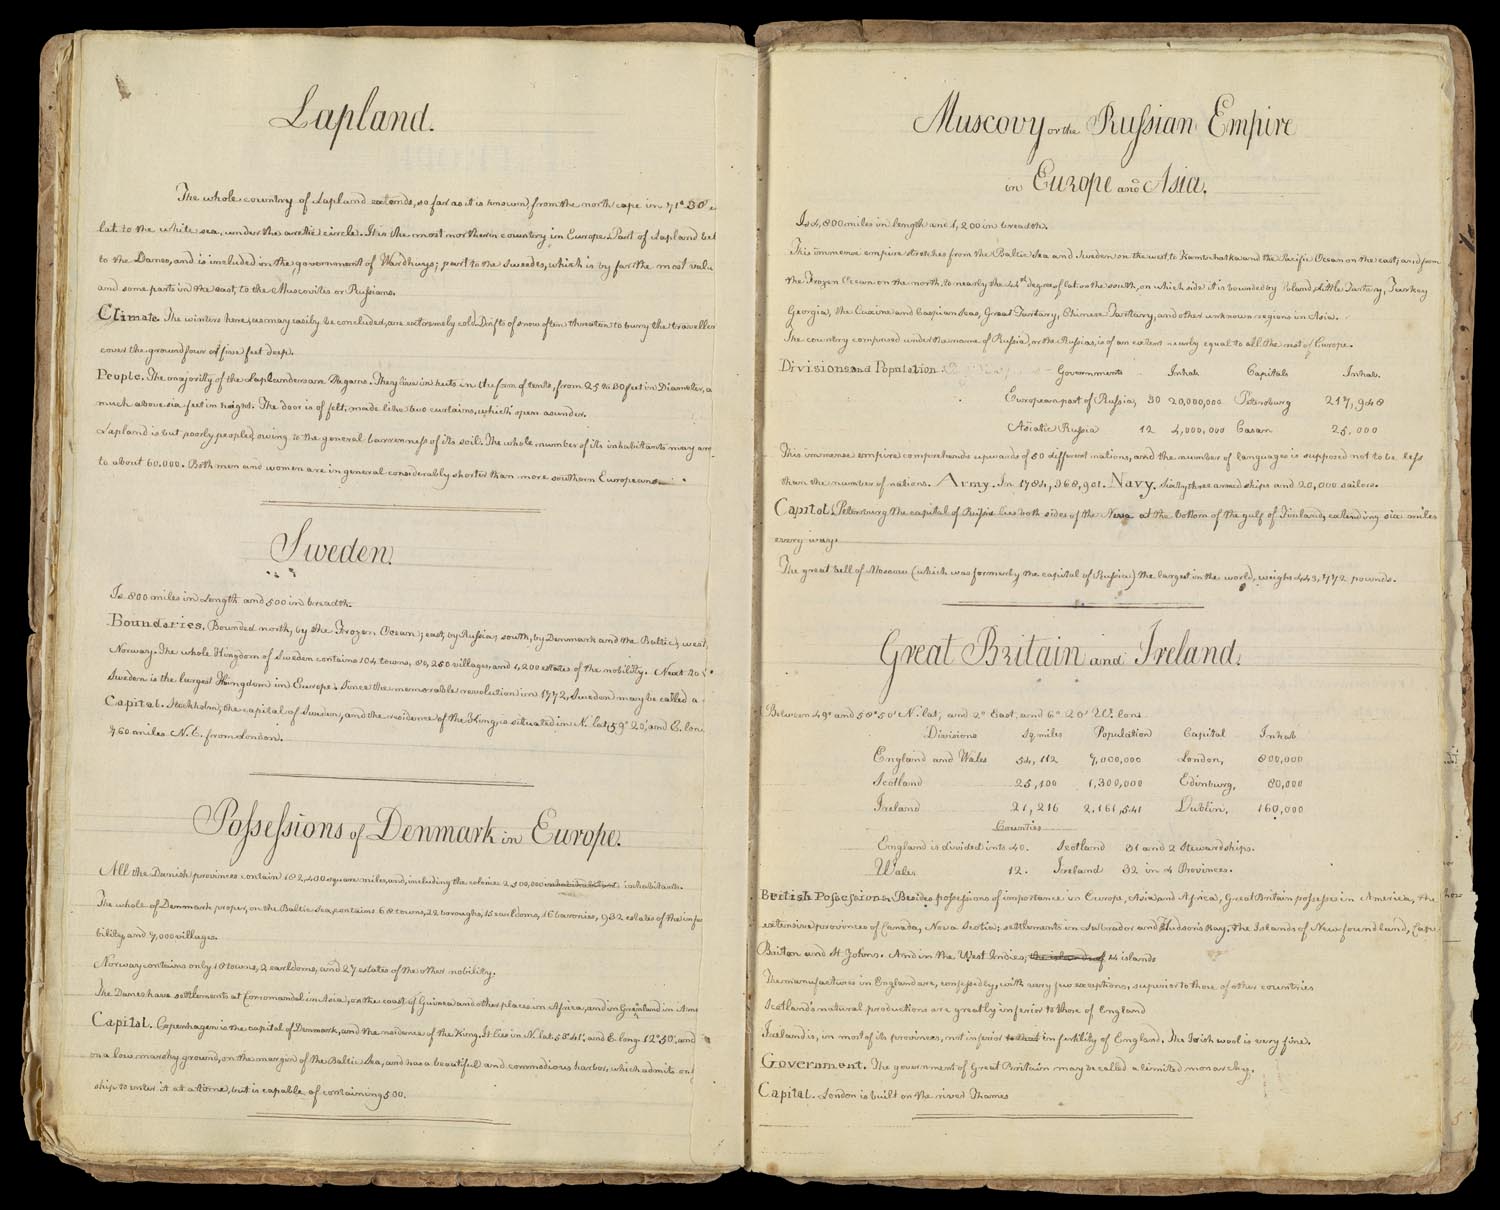 Lapland.
The whole country of Lapland extends, so far as it is known, from the north cape in 71° 30'
lat. to the white sea, under the arctic circle. It is the most northern country in Europe. Part of Lapland bel
to the Danes, and is included in the government of Wardhuys; part to the Sweedes, which is by far the most valu
and some parts in the east, to the Muscovites or Russians.
Climate. The winters here, as may easily be concluded, are extremely cold. Drifts of snow often threaten to burry the traveller
cover the ground four or five feet deep.
People. The majority of the Laplanders are Pagans. They live in huts in the form of tents, from 25 to 30 feet in Diameter, a
much above six feet in height. The door is of felt, made like two curtains, which open asunder.
Lapland is but poorly peopled, owing to the general barrenness of its soil. The whole number of its inhabitants may am
to about 60.000. Both men and women are in general considerably shorter than more southern Europeans.
Sweden.
Is 800 miles in Length and 500 in breadth.
Boundaries. Bounded north, by the Frozen Ocean; east, by Russia; south, by Denmark and the Baltic; west
Norway. The whole Kingdom of Sweden contains 104 towns, 80,250 villages, and 1,200 estates of the nobility. Next to
Sweden is the largest Kingdom in Europe. Since the memorable revolution in 1772, Sweden may be called a
Capital. Stockholm, the capital of Sweden, and the residence of the King, is situated in N. lat, 59° 20', and E. lon.
760 miles N. E. from London.
Possessions of Denmark in Europe.
All the Danish provinces contain 182,400 square miles, and, including the colonies 2,500,000 inhabitants.
The whole of Denmark proper, on the Baltic Sea, contains 68 towns, 22 boroughs, 15 earldoms, 16 baronies, 932 estates of the infer
bility, and 7,000 villages.
Norway contains only 18 towns, 2 earldoms, and 27 estates of the other nobility.
The Danes have settlements at Coromandal in Asia, on the coast of Guinea and other places in Africa, and in Greenland in Ame
Capital. Copenhagen is the capital of Denmark, and the residence of the King. It lies in N. lat. 55° 41', and E. long. 12° 50', and
on a low marshy ground, on the margin of the Baltic Sea, and has a beautiful and commodious harbor, which admits on
ship to enter it at a time, but is capable of containing 500.
Muscovy or the Russian Empire
in Europe and Asia.
Is 4,800 miles in length and 1,200 in breadth.
This immense empire stretches from the Baltic Sea and Sweden on the west, to Kamtchatka and the Pacific Ocean on the east; and from
the Frozen Ocean on the north, to nearly the 44th degree of lat. on the south, on which side it is bounded by Poland, Little Tartary, Turkey
Georgia, the Euxine and Caspian Seas, Great Tartary, Chinese Tartary, and other unknown regions in Asia.
The country comprised under the name of Russia, or the Russias, is of an extent nearly equal to all the rest of Europe.
Divisions and Population. Governments Inhab. Capitals Inhab.
European part of Russia, 30 20,000,000 Petersburg 217,948
Asiatic Russia 12 4,000,000 Casan 25,000
This immense empire comprehends upwards of 50 different nations, and the number of languages is supposed not to be less
than the number of nations. Army. In 1784, 368,901. Navy. Sixty three armed ships and 20,000 sailors.
Capital. Petersburg the capital of Russia lies both sides of the Neva at the bottom of the gulf of Finland, extending six miles
every way.
The great bell of Moscow (which was formerly the capital of Russia) the largest in the world, weighs 443,772 pounds.
Great Britain and Ireland.
Between 49° and 58° 50' N. lat; and 2° East, and 6° 20' W. lon.
Divisions Sq. miles Population Capital Inhab
England and Wales 54,112 7,000,000 London, 800,000
Scotland 25,400 1,300,000 Edinburg, 80,000
Ireland 21,216 2,161,541 Dublin, 160,000
Counties
England is divided into 40. Scotland 31 and 2 Stewardships.
Wales 12. Ireland 32 in 4 Provinces.
British Possessions. Besides possessions of importance in Europe, Asia and Africa, Great Britain possesses in America, the
extensive provinces of Canada, Nova Scotia; settlements in Labrador and Hudson's Bay. The Islands of New found land, Cape
Briton and St Johns. And in the West Indies, the islands of 14 islands
The manufactures in England are, confessedly, with very few exceptions, superior to those of other countries
Scotland's natural productions are greatly inferior to those of England
Ireland is, in most of its provinces, not inferior to that in fertility of England. The Irish wool is very fine.
Government. The government of Great Britain may be called a limited monarchy.
Capital. London is built on the river Thames